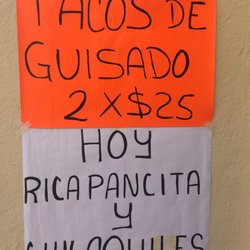 TACOS DE
GUISADO
2 X $25
HOY
RICA PANCITA
Y
CHILAQUILES